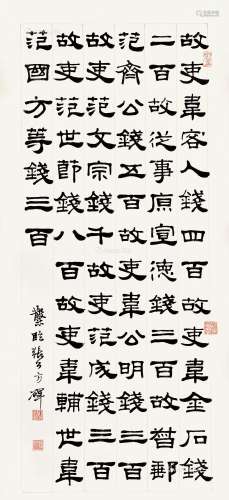 故吏韋客人錢四百故吏韋金石錢
二百故從事原宣德錢三百故督郵
范齊公錢五百故吏韋公明錢三百
故吏范文宗錢千故吏范成錢三百
故吏范世節錢八百故吏韋輔世韋
范國方等錢三百
臨張公方碑